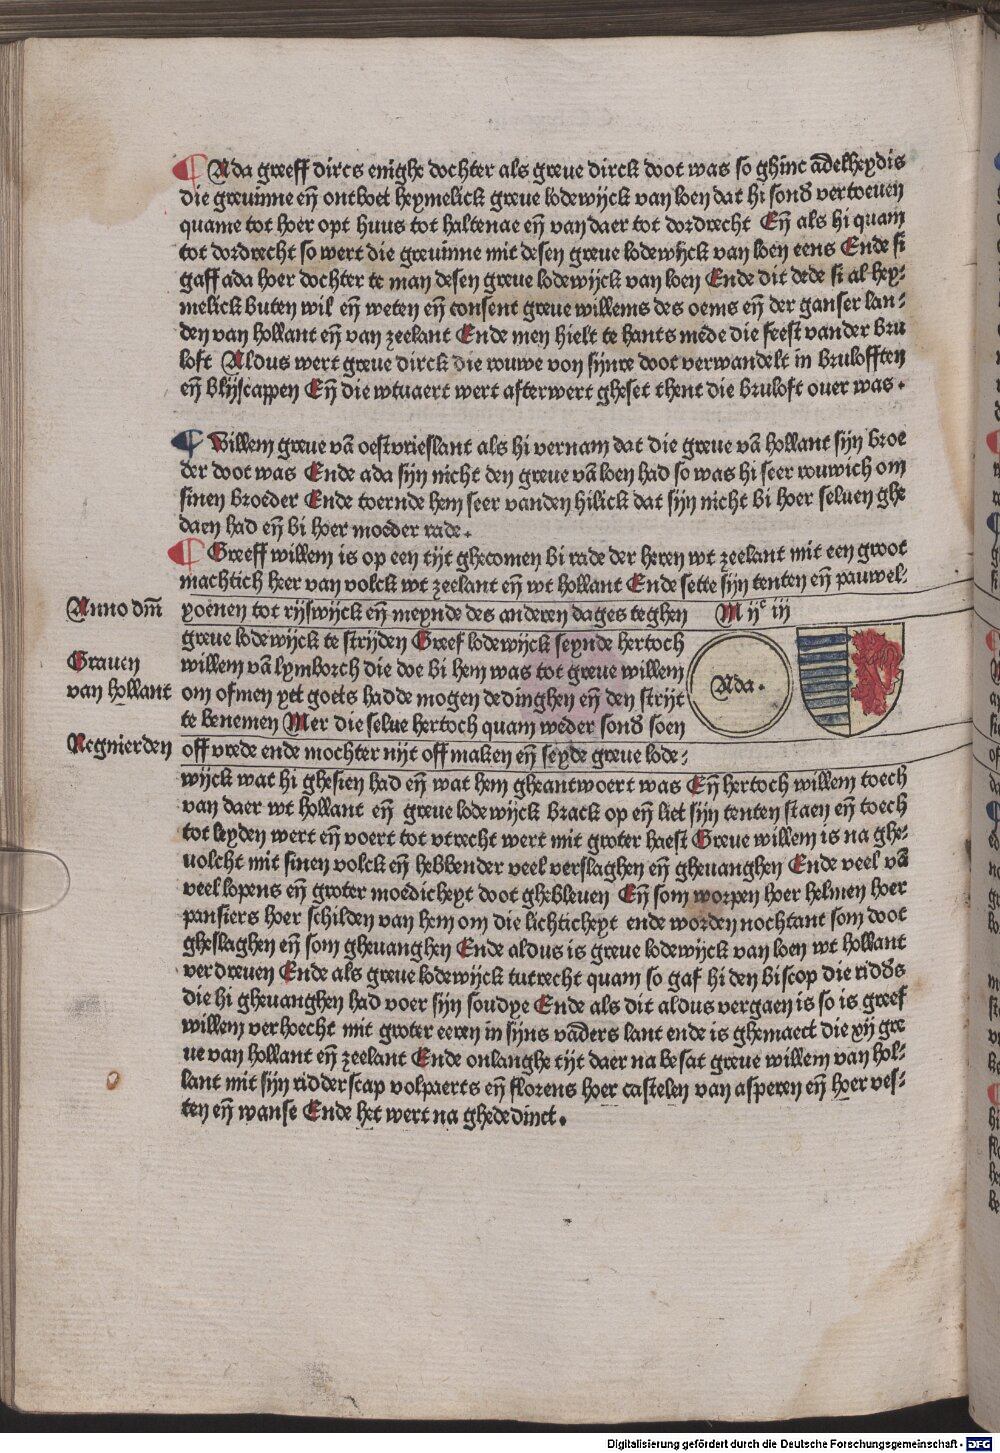 ¶ Ada greeff dircs enighe dochter als greue dirck doot was so ghinc adelheydis
die greuinne eñ ontboet heymelick greue lodewijck van loen dat hi sond̕ vertoeuen
quame tot hoer opt huus tot haltenae eñ van daer tot dordrecht Eñ als hi quam
tot dordrecht so wert die greuinne mit desen greue lodewijck van loen eens Ende si
gaff ada hoer dochter te man desen greue lodewijck van loen Ende dit dede si al hey⸗
melick buten wil eñ weten eñ consent greue willems des oems eñ der ganser lan⸗
den van hollant eñ van zeelant Ende men hielt te hants mede die feest vander bru
loft Aldus wert greue dirck die rouwe von sijnre doot verwandelt in brulofften
eñ blijscappen Eñ die wtuaert wert afterwert gheset thent die bruloft ouer was.
¶ Willem greue vā oestvrieslant als hi vernam dat die greue vā hollant sijn broe
der doot was Ende ada sijn nicht den greue vā loen had so was hi seer rouwich om
sinen broeder Ende toernde hem seer vanden hilick dat sijn nicht bi hoer seluen ghe
daen had eñ bi hoer moeder rade.
¶ Greeff willem is op een tijt ghecomen bi rade der heren wt zeelant mit een groot
machtich heer van volck wt zeelant eñ wt hollant Ende sette sijn tenten eñ pauwel⸗
Anno dm̄ yoenen tot rijswijck eñ meynde des anderen dages teghen M ijᶜ iij
greue lodewijck te strijden Greef lodewijck seynde hertoch
Grauen
willem vā lymborch die doe bi hem was tot greue willem
Ada.
van hollant om ofmen yet goets hadde mogen dedinghen eñ den strijt
te benemen Mer die selue hertoch quam weder sond̕ soen
Regnierden off vrede ende mochter nijt off maken eñ seyde greue lode⸗
wijck wat hi ghesien had eñ wat hem gheantwoert was Eñ hertoch willem toech
van daer wt hollant eñ greue lodewijck brack op eñ liet sijn tenten staen eñ toech
tot leyden wert eñ voert tot vtrecht wert mit groter haest Greue willem is na ghe⸗
uolcht mit sinen volck eñ hebbender veel verslaghen eñ gheuanghen Ende veel vā
veel lopens eñ groter moedicheyt doot ghebleuen Eñ som worpen hoer helmen hoer
pansiers hoer schilden van hem om die lichticheyt ende worden nochtant som doot
gheslaghen eñ som gheuanghen Ende aldus is greue lodewijck van loen wt hollant
verdreuen Ende als greue lodewijck tutrecht quam so gaf hi den biscop die ridd̕s
die hi gheuanghen had voer sijn soudye Ende als dit aldus vergaen is so is greef
willem verhoecht mit groter eeren in sijns vād̕ers lant ende is ghemaect die xij gre
ue van hollant eñ zeelant Ende onlanghe tijt daer na besat greue willem van hol⸗
lant mit sijn ridderscap volpaerts eñ florens hoer castelen van asperen eñ hoer ves⸗
ten eñ wanse Ende het wert na ghededinct.
Digitalisierung gefördert durch die Deutsche Forschungsgemeinschaft - DFG